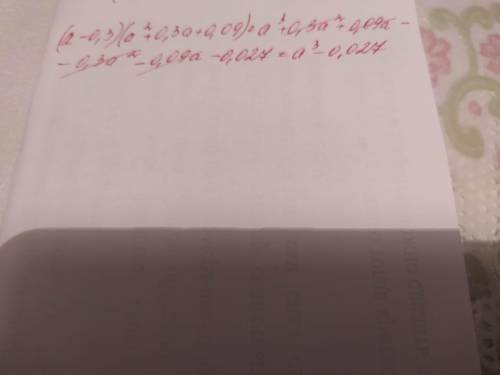 (a-0,3)(a²+0,3a+0,09)=a³+0,3a²+0,09a-
-0,3a²-0,09a-0,027=a³-0,027